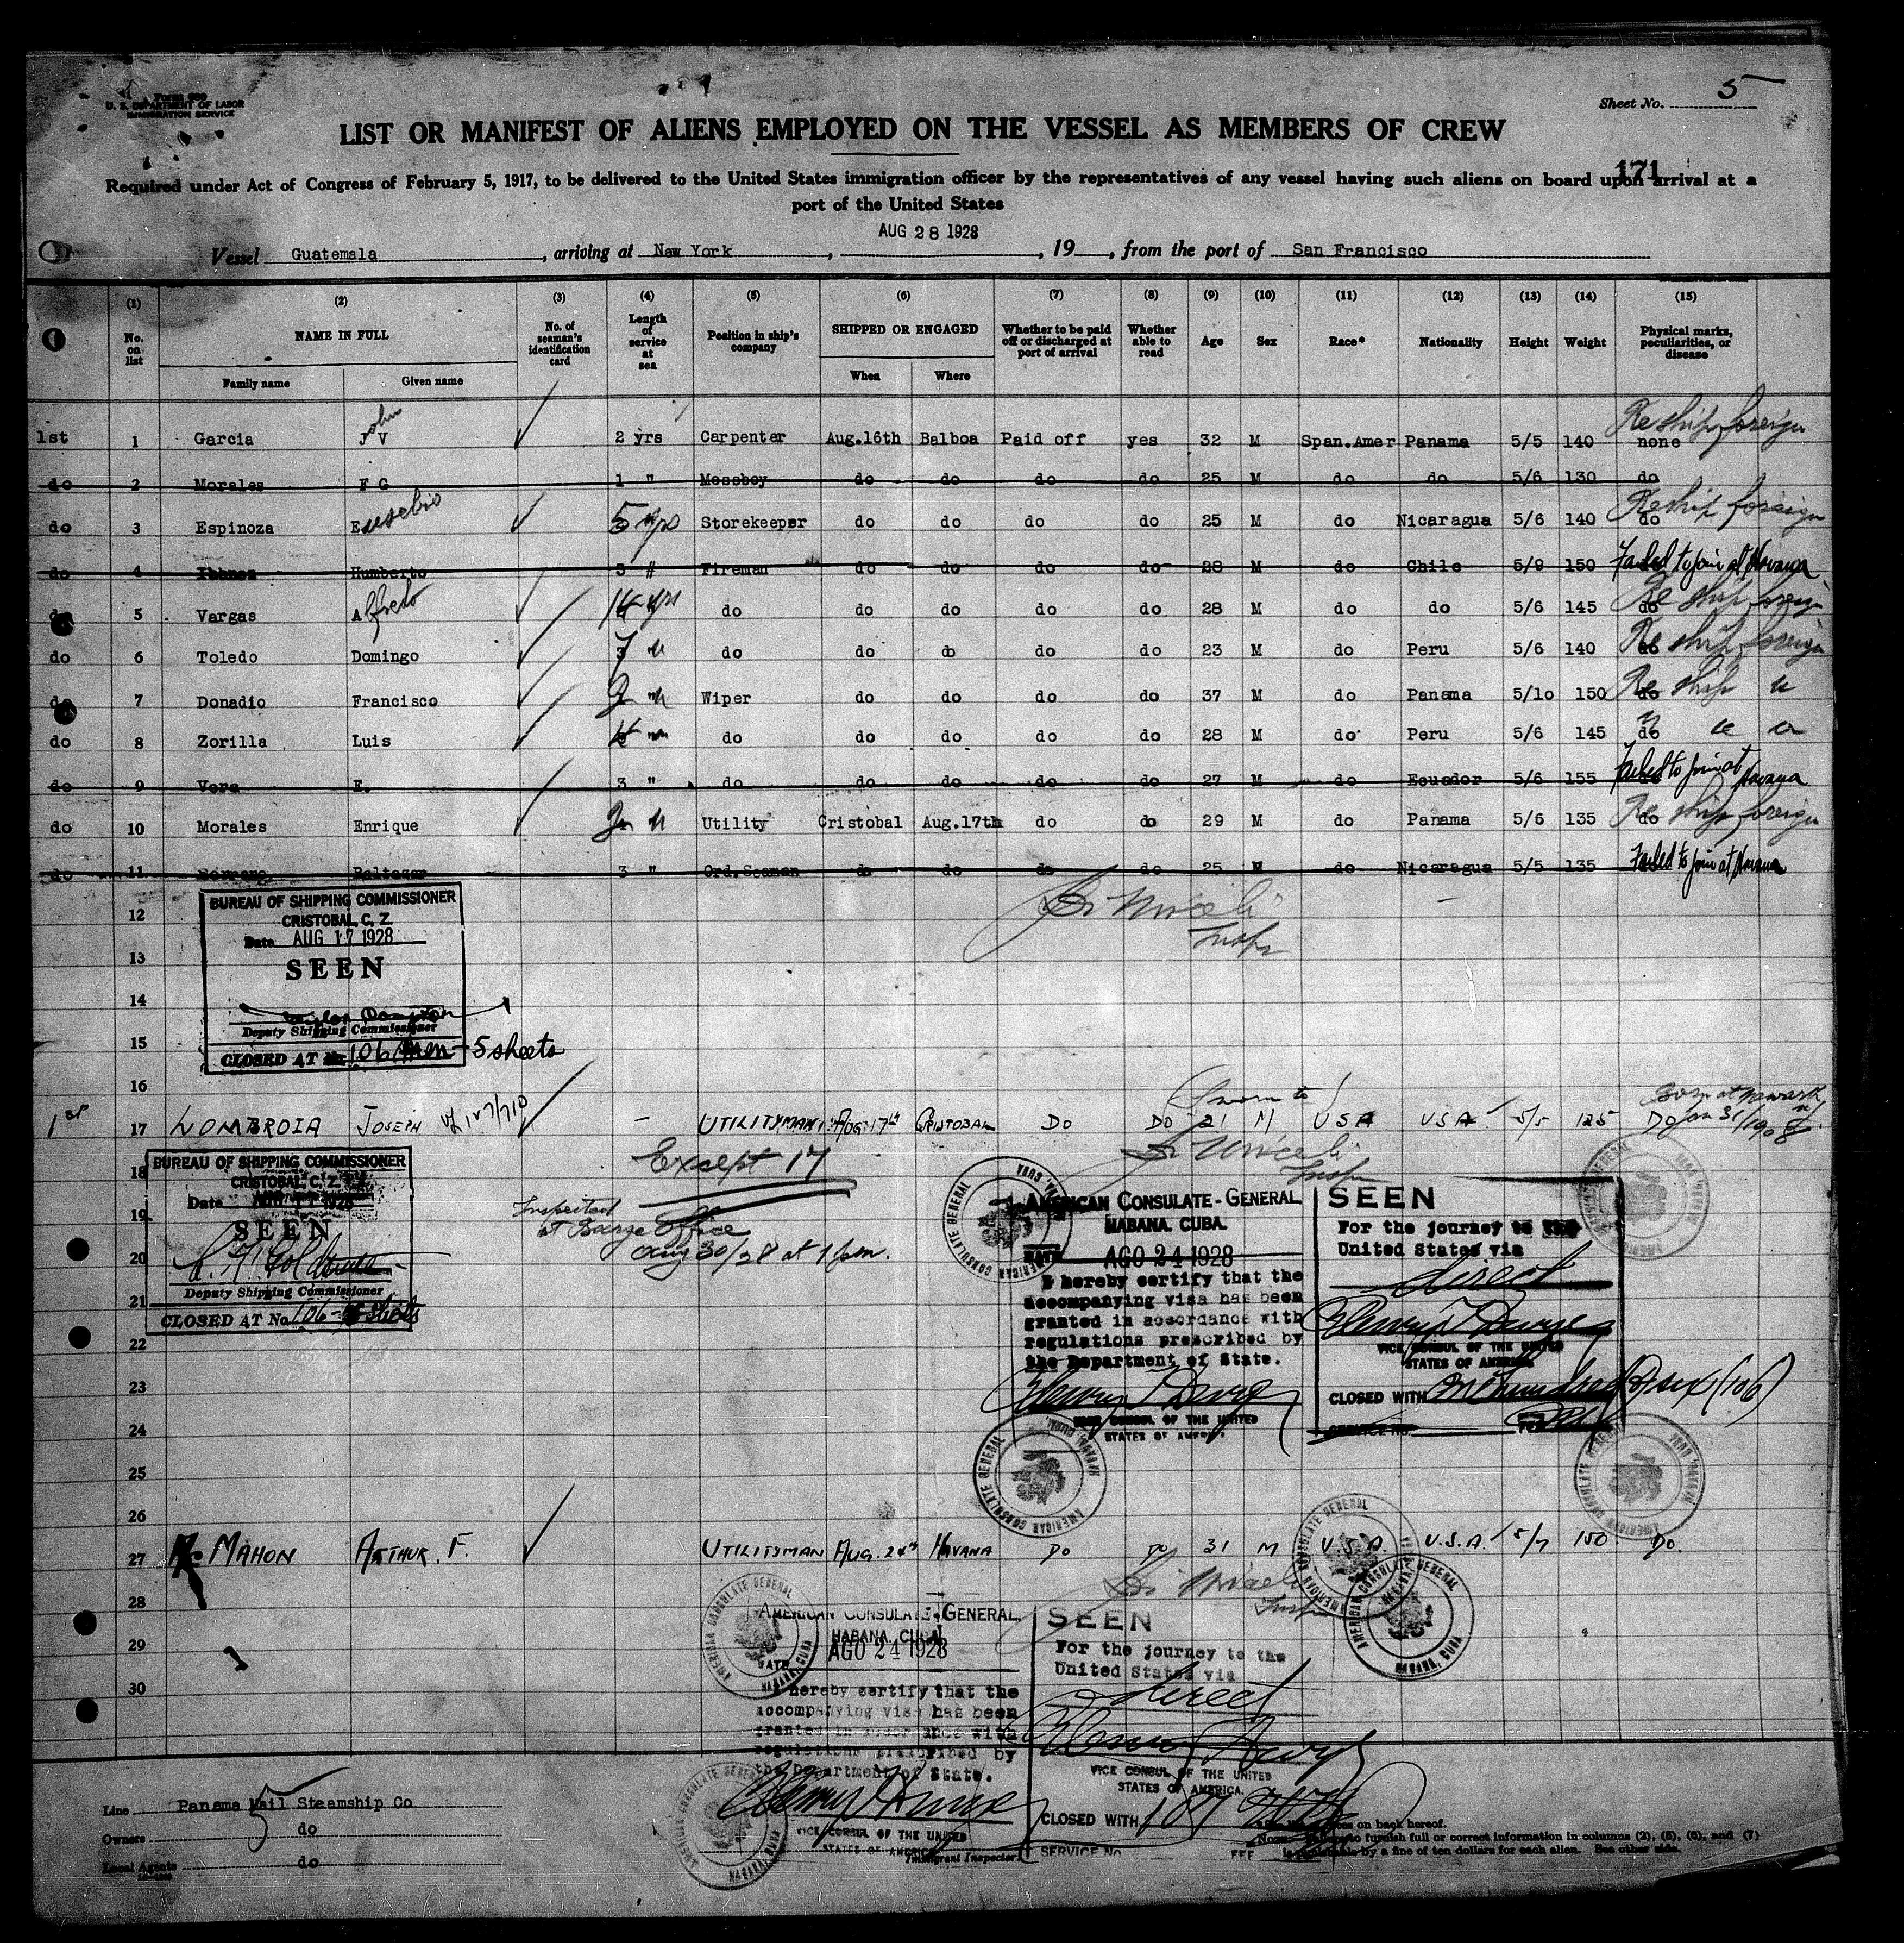 Form 680
U. S. DEPARTMENT OF LABOR
IMMIGRATION SERVICE
Sheet No. 5
LIST OR MANIFEST OF ALIENS EMPLOYED ON THE VESSEL AS MEMBERS OF CREW
171
Required under Act of Congress of February 5, 1917, to be delivered to the United States immigration officer by the representatives of any vessel having such aliens on board upon arrival at a
port of the United States
AUG 28 1928
Vessel Guatemala, arriving at New York, , 19 , from the port of San Francisco
(1) (2) (3) (4) (5) (6) (7) (8) (9) (10) (11) (12) (13) (14) (15)
No. on list NAME IN FULL Family name Given name No. of seaman's identification card Length of service at sea Position in ship's company SHIPPED OR ENGAGED When Where Whether to be paid off or discharged at port of arrival Whether able to read Age Sex Race* Nationality Height Weight Physical marks, peculiarities, or disease
1st 1 Garcia J V John 2 yrs Carpenter Aug.16th Balboa Paid off yes 32 M Span.Amer Panama 5/5 140 none Reship foreign
do 2 Morales F G 1 " Messboy do do do do 25 M do do 5/6 130 do
do 3 Espinoza Eusebio 5 yrs Storekeeper do do do do 25 M do Nicaragua 5/6 140 do Reship foreign
do 4 Humberto 3 " Fireman do do do do 28 M do Chile 5/9 150 Failed to join at Havana
do 5 Vargas Alfredo yrs do do do do do 28 M do do 5/6 145 do Re ship foreign
do 6 Toledo Domingo do do do do do 23 M do Peru 5/6 140 do Re ship foreign
do 7 Donadio Francisco Wiper do do do do 37 M do Panama 5/10 150 do Re ship "
do 8 Zorilla Luis do do do do do 28 M do Peru 5/6 145 do " " "
do 9 Vera E. 3 " do do do do do 27 M do Ecuador 5/6 155 Failed to join at Havana
do 10 Morales Enrique Utility Cristobal Aug.17th do do 29 M do Panama 5/6 135 do Re ship foreign
do 11 Baltazar 3 " Ord.Seaman do do do do 25 M do Nicaragua 5/5 135 Failed to join at Havana
12
13
14
15
16
BUREAU OF SHIPPING COMMISSIONER
CRISTOBAL, C. Z.
Date AUG 17 1928
SEEN
Deputy Shipping Commissioner
CLOSED AT No. 106 men - 5 sheets
Insp
Sworn to
1st 17 LOMBROIA JOSEPH - UTILITYMAN AUG 17th CRISTOBAL DO DO 21 M USA USA 5/5 125 DO
Born at Newark
Jan 31/1908
Except 17
Inspected
at Barge Office
Aug 30/28 at 1 pm.
18
19
20
21
22
23
24
25
26
BUREAU OF SHIPPING COMMISSIONER
CRISTOBAL, C. Z.
Date
SEEN
Deputy Shipping Commissioner
CLOSED AT No. 106
AMERICAN CONSULATE-GENERAL
HABANA, CUBA.
DATE AGO 24 1928
I hereby certify that the
accompanying visa has been
granted in accordance with
regulations prescribed by
the Department of State.
VICE CONSUL OF THE UNITED
STATES OF AMERICA
SEEN
For the journey to the
United States via
direct
VICE CONSUL OF THE UNITED
STATES OF AMERICA.
CLOSED WITH One hundred & six (106)
SERVICE NO. FEE
AMERICAN CONSULATE GENERAL HAVANA, CUBA
27 Mc MAHON ARTHUR. F. UTILITYMAN AUG. 24th HAVANA DO DO 31 M U.S.A. U.S.A. 5/7 150 DO.
Insp
28
29
30
AMERICAN CONSULATE-GENERAL,
HABANA, CUBA
DATE AGO 24 1928
I hereby certify that the
accompanying visa has been
granted in accordance with
regulations prescribed by
the Department of State.
VICE CONSUL OF THE UNITED
STATES OF AMERICA
SEEN
For the journey to the
United States via
direct
VICE CONSUL OF THE UNITED
STATES OF AMERICA.
CLOSED WITH 107
SERVICE No. FEE
Line Panama Mail Steamship Co
Owners do
Local Agents do
5
Immigrant Inspector.
on back hereof.
to furnish full or correct information in columns (2), (5), (6), and (7)
is punishable by a fine of ten dollars for each alien. See other side.